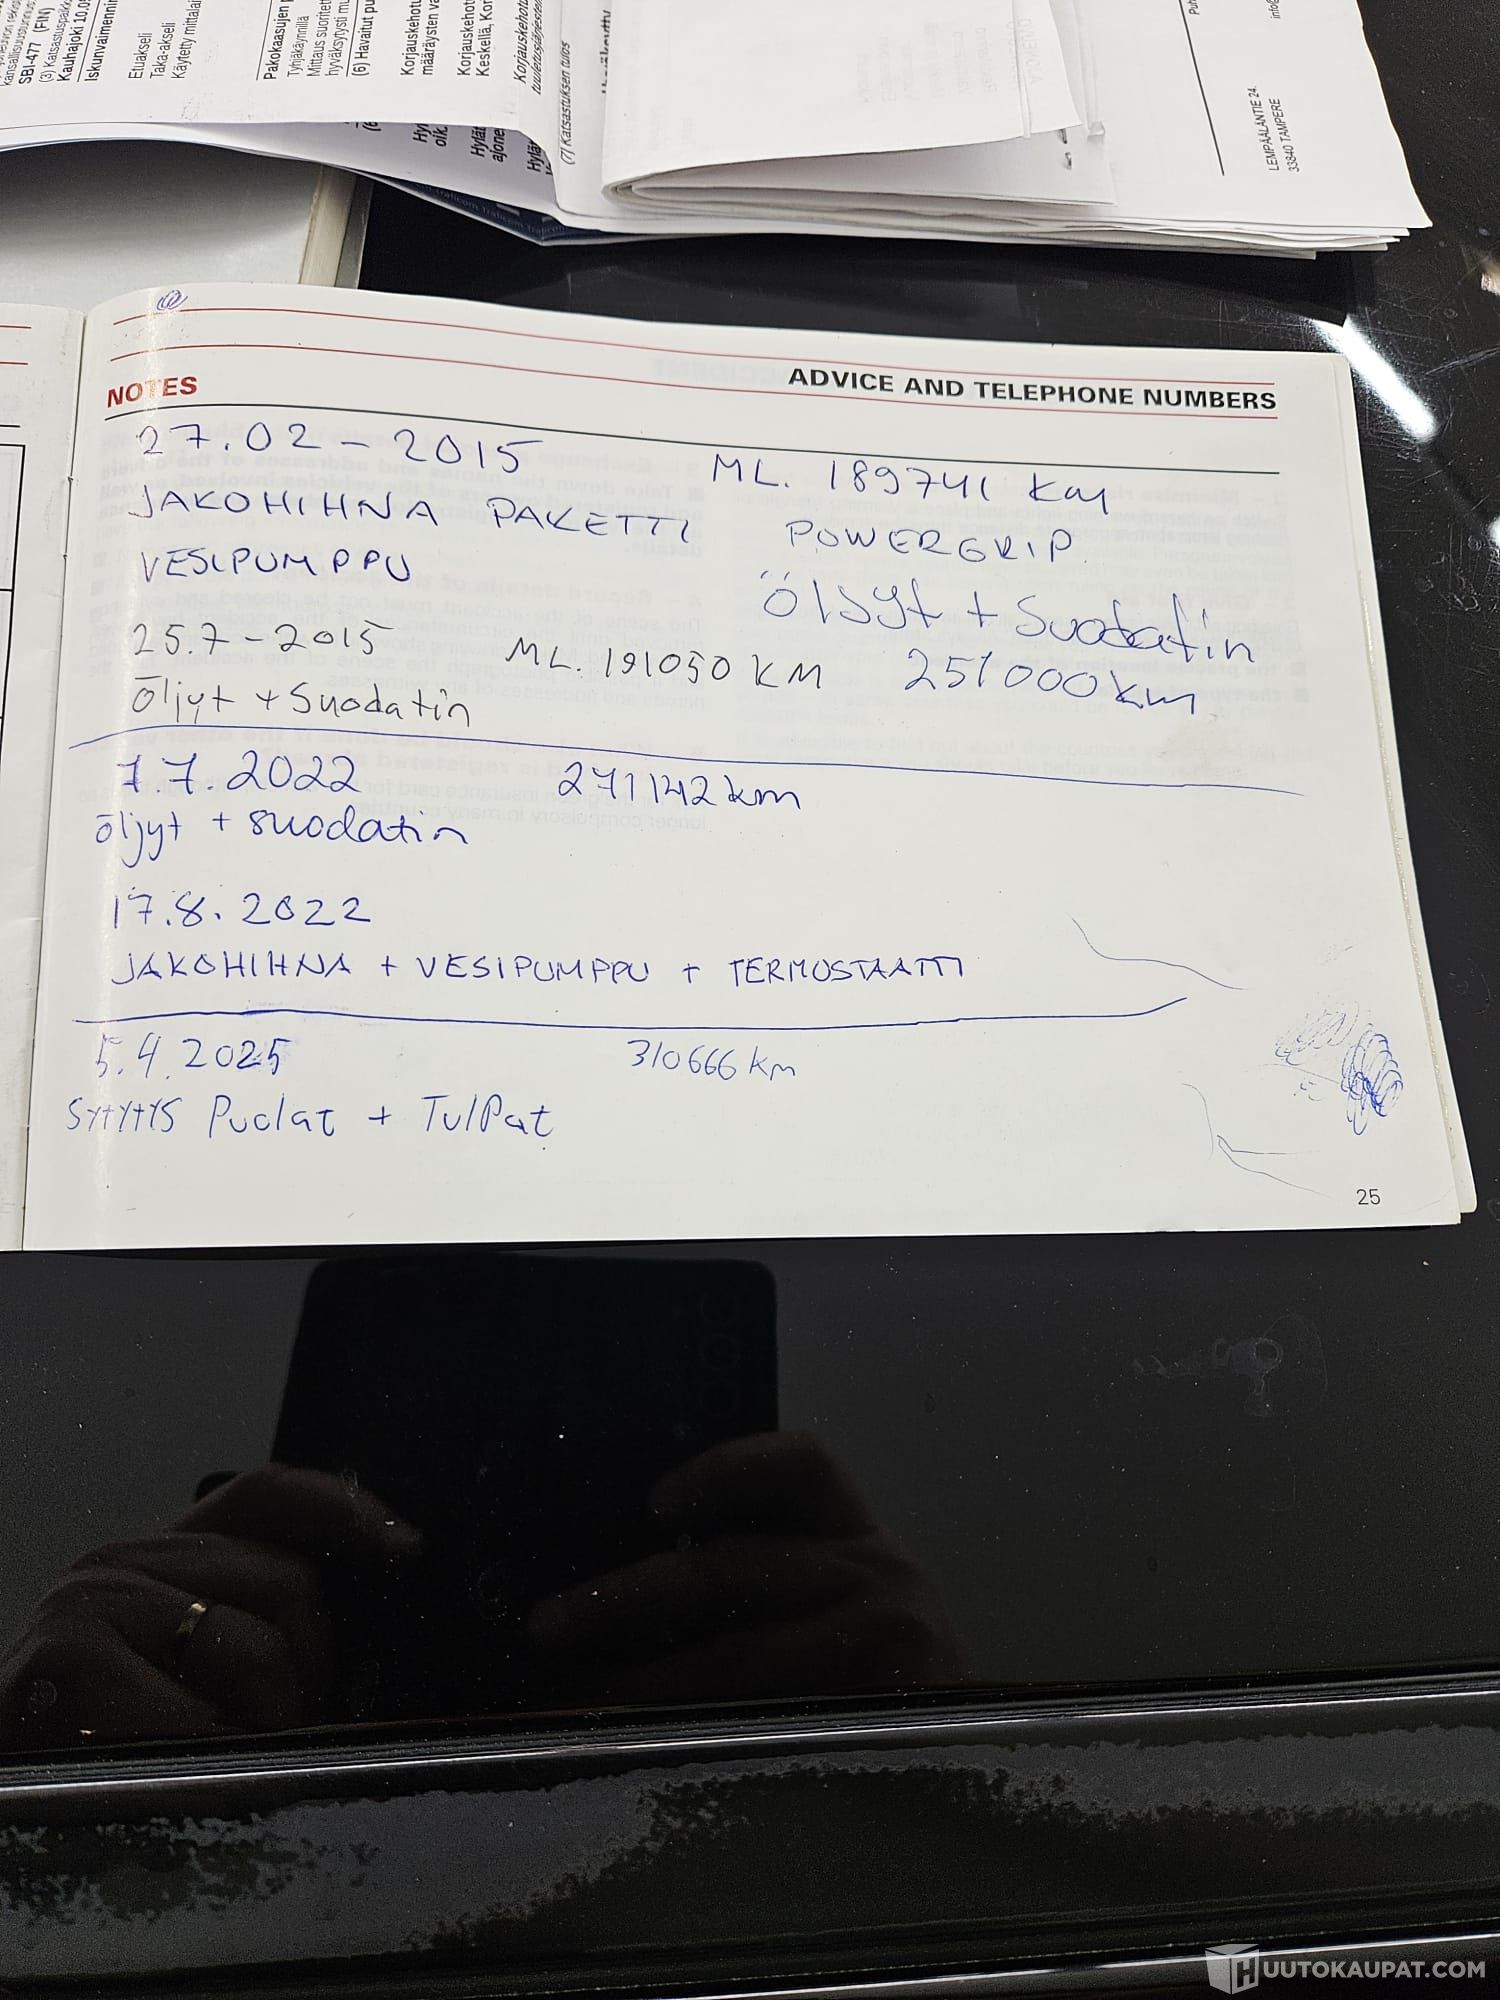 kansallisuustunnus
SBI-477 (FIN)
(3) Katsastuspaikka
Kauhajoki 10.09
Iskunvaimennin
Etuakseli
Taka-akseli
Käytetty mittalai
Pakokaasujen p
Tyhjäkäynnillä
Mittaus suoritett
hyväksytysti mu
(6) Havaitut pu
Korjauskehot
määräysten va
Korjauskehot
Keskellä, Kor
Korjauskehot
tuuletusjärjesten
(7) Katsastuksen tulos
LEMPÄÄLÄNTIE 24.
33840 TAMPERE
NOTES
ADVICE AND TELEPHONE NUMBERS
27.02-2015 ML. 189741 km
JAKOHIHNA PAKETTI POWERGRIP
VESIPUMPPU
Öljyt + Suodatin
25.7-2015 ML. 191050 KM 251000km
Öljyt + Suodatin
7.7.2022 271142km
öljyt + suodatin
17.8.2022
JAKOHIHNA + VESIPUMPPU + TERMOSTAATTI
5.4.2025 310666 km
SYTYTYS Puolat + TulPat
25
HUUTOKAUPAT.COM